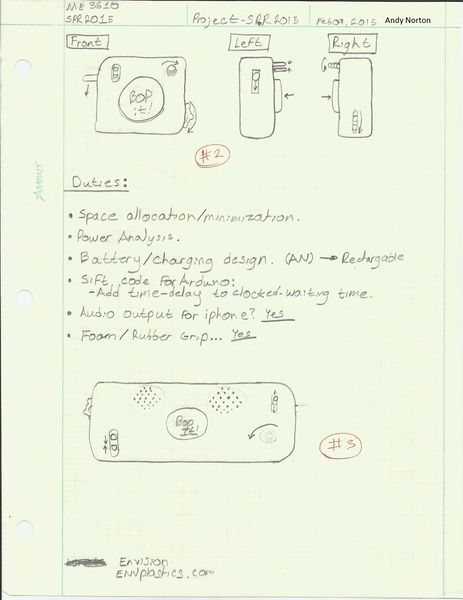 ME 3610
SPR2015
Project-SPR 2015
Feb 09, 2015
Andy Norton
Front
Left
Right
BOP
it!
#2
AMPAD
Duties:
• Space allocation/minimization.
• Power Analysis.
• Battery/charging design. (AN) → Rechargable
• Sift code for Arduno:
-Add time-delay to clocked-waiting time.
• Audio output for iphone? Yes
• Foam/Rubber Grip... Yes
Bop
It!
#3
Envision
ENVplastics.com